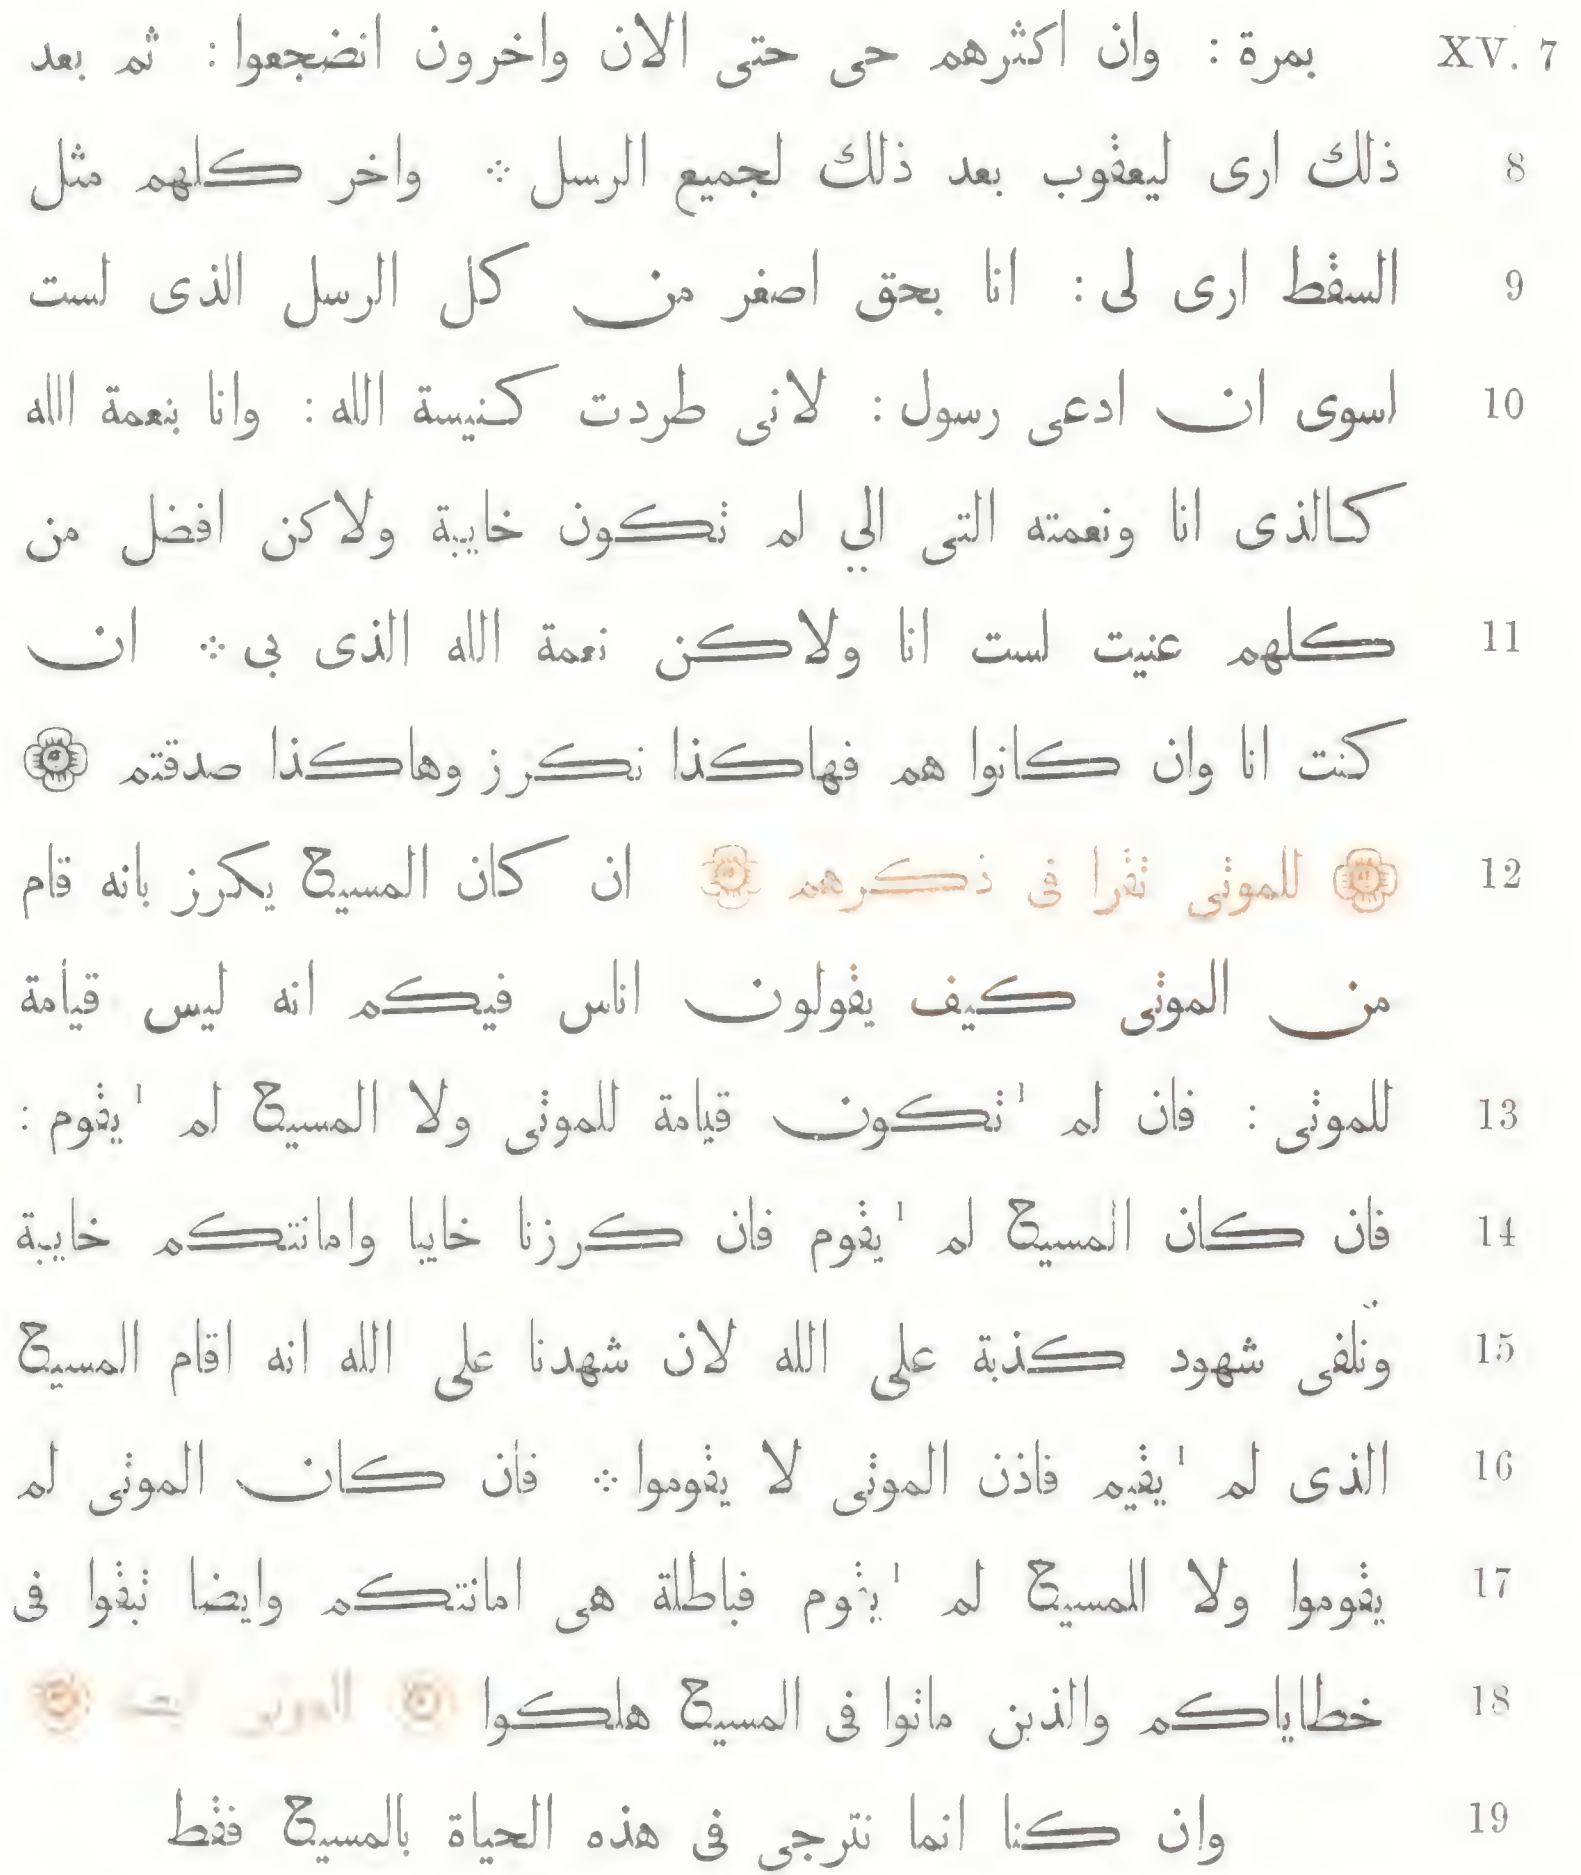 XV. 7 بمرة : وان اكثرهم حى حتى الان واخرون انضجعوا : ثم بعد
8 ذلك ارى ليعقوب بعد ذلك لجميع الرسل ⁘ واخر كلهم مثل
9 السقط ارى لى : انا بحق اصغر من كل الرسل الذى لست
10 اسوى ان ادعى رسول : لانى طردت كنيسة الله : وانا بنعمة الله
كالذى انا ونعمته التى الي لم تكون خايبة ولاكن افضل من
11 كلهم عنيت لست انا ولاكن نعمة الله الذى بى ⁘ ان
كنت انا وان كانوا هم فهاكذا نكرز وهاكذا صدقتم
12 للموتى تقرا فى ذكرهم ان كان المسيح يكرز بانه قام
من الموتى كيف يقولون اناس فيكم انه ليس قيامة
13 للموتى : فان لم ¹تكون قيامة للموتى ولا المسيح لم ¹يقوم :
14 فان كان المسيح لم ¹يقوم فان كرزنا خايبا وامانتكم خايبة
15 ونلفى شهود كذبة على الله لان شهدنا على الله انه اقام المسيح
16 الذى لم ¹يقيم فاذن الموتى لا يقوموا ⁘ فان كان الموتى لم
17 يقوموا ولا المسيح لم ¹يقوم فباطلة هى امانتكم وايضا تبقوا فى
18 خطاياكم والذين ماتوا فى المسيح هلكوا
19 وان كنا انما نترجى فى هذه الحياة بالمسيح فقط